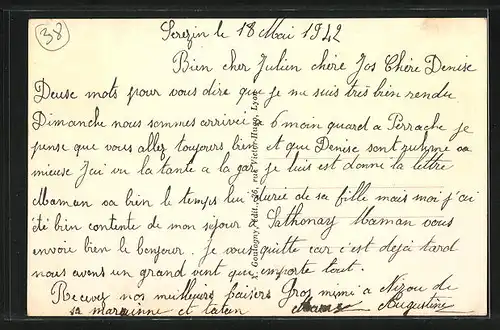 38
Serezin le 18 Mai 1942
Bien cher Julien chère Jos Chère Denise
Deuse mots pour vous dire que je me suis très bien rendu
Dimanche nous sommes arrivée a 6 moin quard a Perrache je
pense que vous allez toujours bien et que Denise sont ruhme va
mieuse J'ai vu la tante a la gare je luis est donné la lettre
Maman va bien le temps lui durée de sa fille mais moi j'ai
été bien contente de mon séjour a Sathonay Maman vous
envoie bien le bonjour. Je vous quitte car c'est dejà tard
nous avons un grand vent que emporte tout.
Recevez nos meilleurs baisers Gros mimi a Nizou de
sa marainne et tatan Augustine
Goutagny, édit., 26, rue Victor-Hugo, Lyon